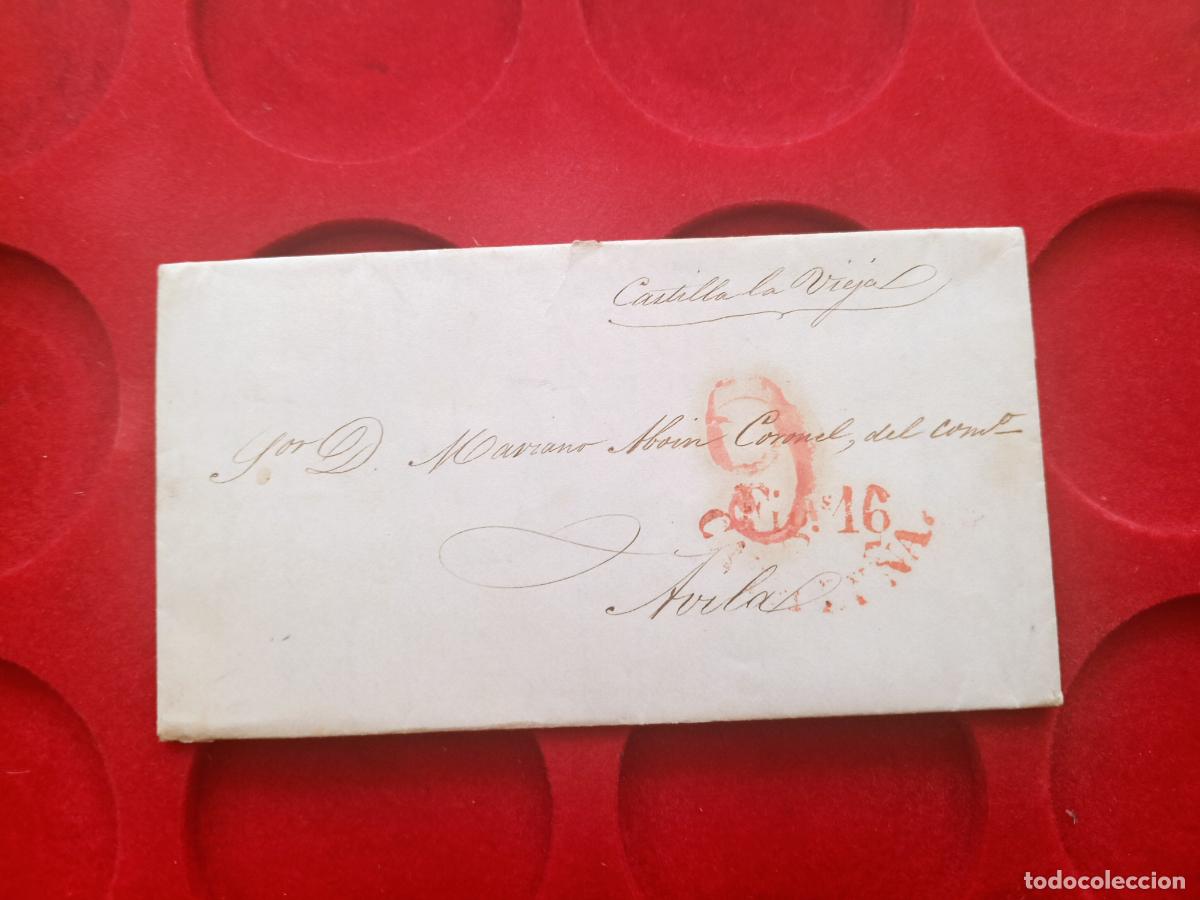 Castilla la Vieja
Sor D. Mariano Aboin Coronel, del comº
9
16
Avila
todocoleccion